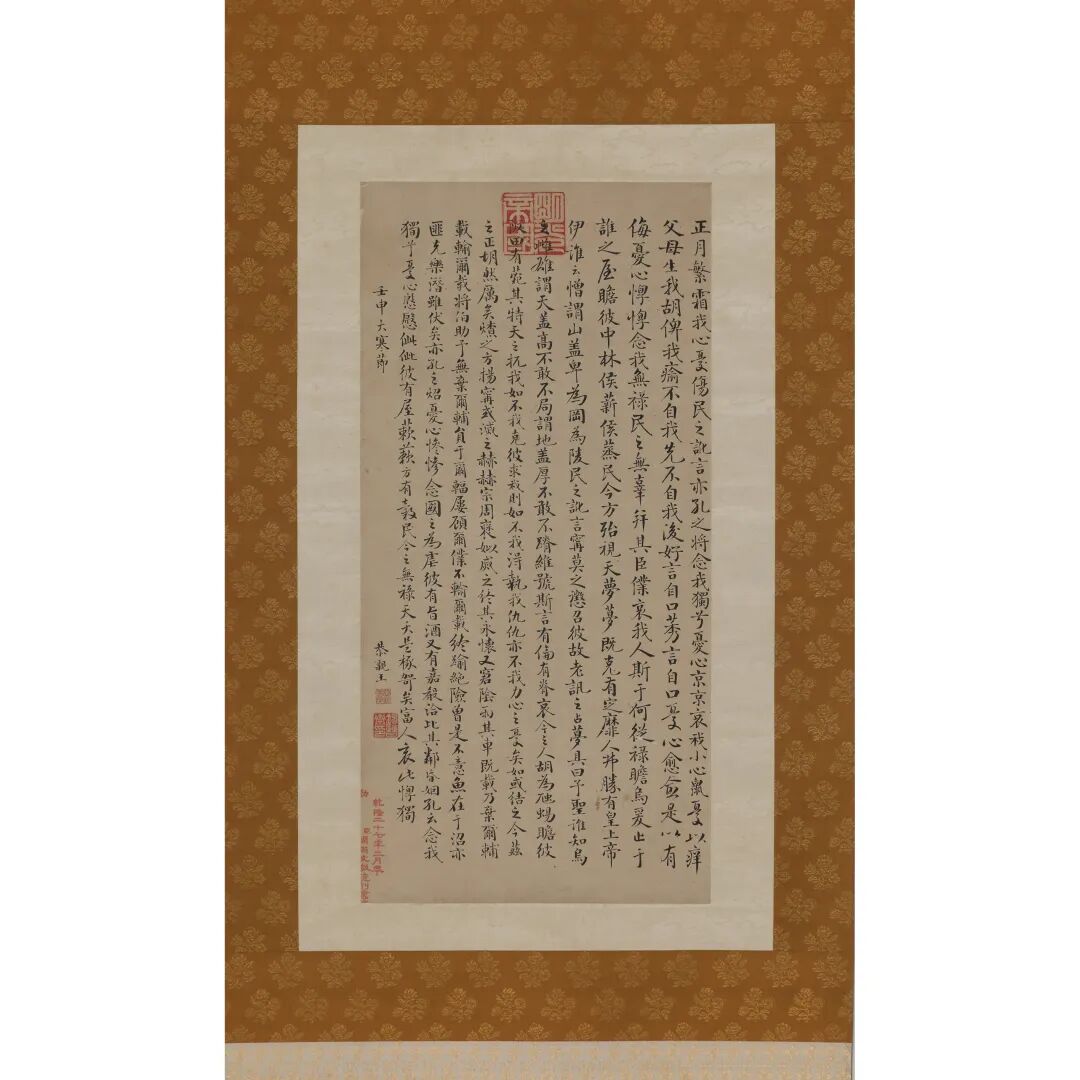 正月繁霜我心憂傷民之訛言亦孔之將念我獨兮憂心京京哀我小心癙憂以痒
父母生我胡俾我瘉不自我先不自我後好言自口莠言自口憂心愈愈是以有
侮憂心惸惸念我無祿民之無辜并其臣僕哀我人斯于何從祿瞻烏爰止于
誰之屋瞻彼中林侯薪侯蒸民今方殆視天夢夢既克有定靡人弗勝有皇上帝
伊誰云憎謂山盖卑為岡為陵民之訛言寧莫之懲召彼故老訊之占夢具曰予聖誰知烏
之雌雄謂天盖高不敢不局謂地盖厚不敢不蹐維號斯言有倫有脊哀今之人胡為虺蜴瞻彼
阪田有菀其特天之扤我如不我克彼求我則如不我得執我仇仇亦不我力心之憂矣如或結之今茲
之正胡然厲矣燎之方揚寧或滅之赫赫宗周褒姒烕之終其永懷又窘陰雨其車既載乃棄爾輔
載輸爾載將伯助予無棄爾輔員于爾輻屢顧爾僕不輸爾載終踰絕險曾是不意魚在于沼亦
匪克樂潛雖伏矣亦孔之炤憂心慘慘念國之為虐彼有旨酒又有嘉殽洽比其鄰昏姻孔云念我
獨兮憂心慇慇佌佌彼有屋蔌蔌方有穀民今之無祿天夭是椓哿矣富人哀此惸獨
壬申大寒節
恭親王
乾隆三十七年二月